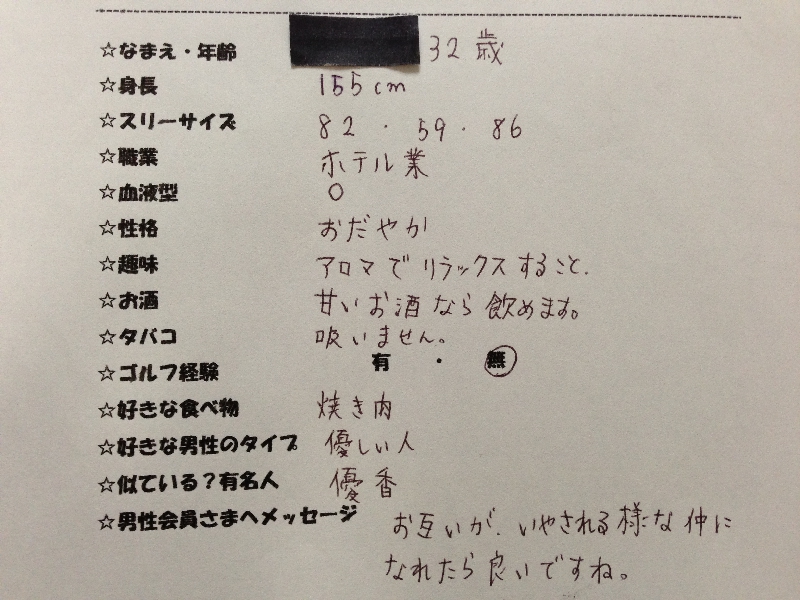 ☆なまえ・年齢 32歳
☆身長 155cm
☆スリーサイズ 82・59・86
☆職業 ホテル業
☆血液型 O
☆性格 おだやか
☆趣味 アロマでリラックスすること.
☆お酒 甘いお酒なら飲めます。
☆タバコ 吸いません。
☆ゴルフ経験 有・無
☆好きな食べ物 焼き肉
☆好きな男性のタイプ 優しい人
☆似ている?有名人 優香
☆男性会員さまへメッセージ お互いが、いやされる様な仲に
なれたら良いですね。